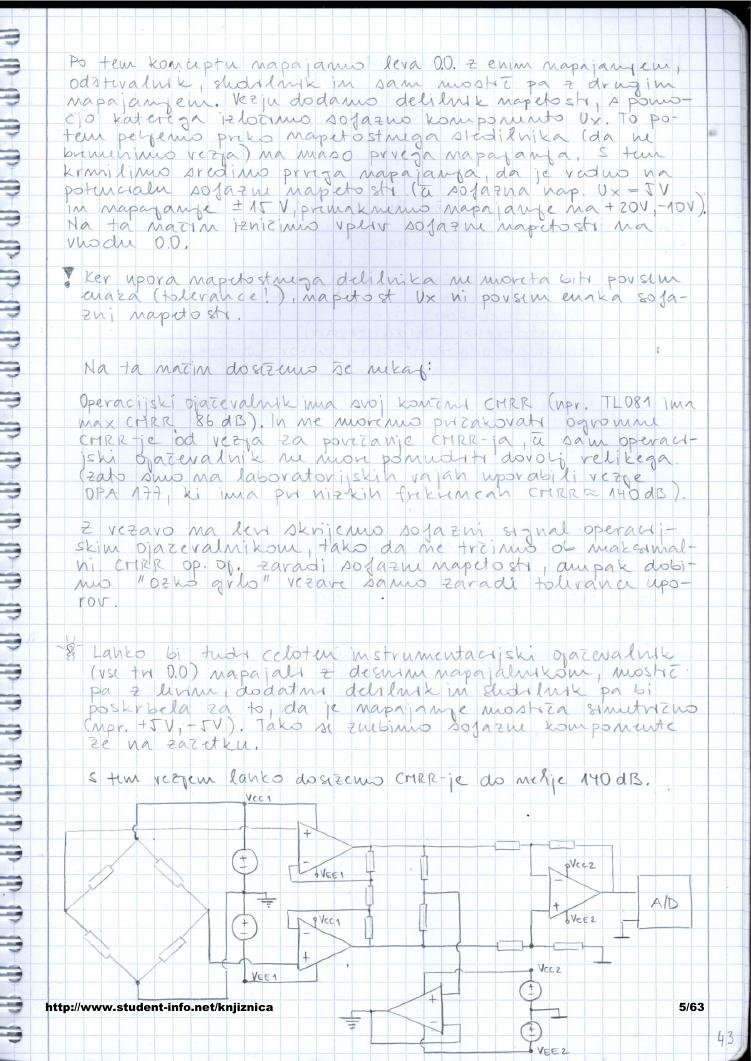 Po tem konceptu napajamo leva O.O. z enim napajanjem,
odštevalnik, sledilnik in sam mostič pa z drugim
napajanjem. Vezju dodamo delilnik napetosti, s pomo-
čjo katerega izločimo sofazno komponento Ux. To po-
tem peljemo preko napetostnega sledilnika (da ne
bremenimo vezja) na maso prvega napajanja. S tem
krmilimo sredino prvega napajanja, da je vedno na
potencialu sofazne napetosti (če sofazna nap. Ux = 5V
in napajanje ±15 V, primaknemo napajanje na +20V, -10V).
Na ta način izničimo vpliv sofazne napetosti na
vhodu O.O.
! Ker upora napetostnega delilnika ne moreta biti povsem
enaka (tolerance!), napetost Ux ni povsem enaka sofa-
zni napetosti.
Na ta način dosežemo še nekaj:
Operacijski ojačevalnik ima svoj končni CMRR (npr. TL081 ima
max CMRR 86 dB). In ne moremo pričakovati ogromne
CMRR-je od vezja za povečanje CMRR-ja, če sam operaci-
jski ojačevalnik ne more ponuditi dovolj velikega.
(zato smo na laboratorijskih vajah uporabili vezje
OPA 177, ki ima pri nizkih frekvencah CMRR ≈ 140 dB).
Z vezavo na levi skrijemo sofazni signal operacij-
skim ojačevalnikom, tako da ne trčimo ob maksimal-
ni CMRR op. oj. zaradi sofazne napetosti, ampak dobi-
mo "ozko grlo" vezave samo zaradi toleranc upo-
rov.
Lahko bi tudi celoten instrumentacijski ojačevalnik
(vse tri O.O) napajali z desnim napajalnikom, mostič
pa z levim, dodatni delilnik in sledilnik pa bi
poskrbela za to, da je napajanje mostiča simetrično
(npr. +5V, -5V). Tako se znebimo sofazne komponente
že na začetku.
S tem vezjem lahko dosežemo CMRR-je do meje 140 dB.
VCC1
+
-
VEE1
VCC1
-
+
VEE1
VCC2
-
+
VEE2
A/D
+
-
VCC2
VEE2
http://www.student-info.net/knjiznica
5/63
43